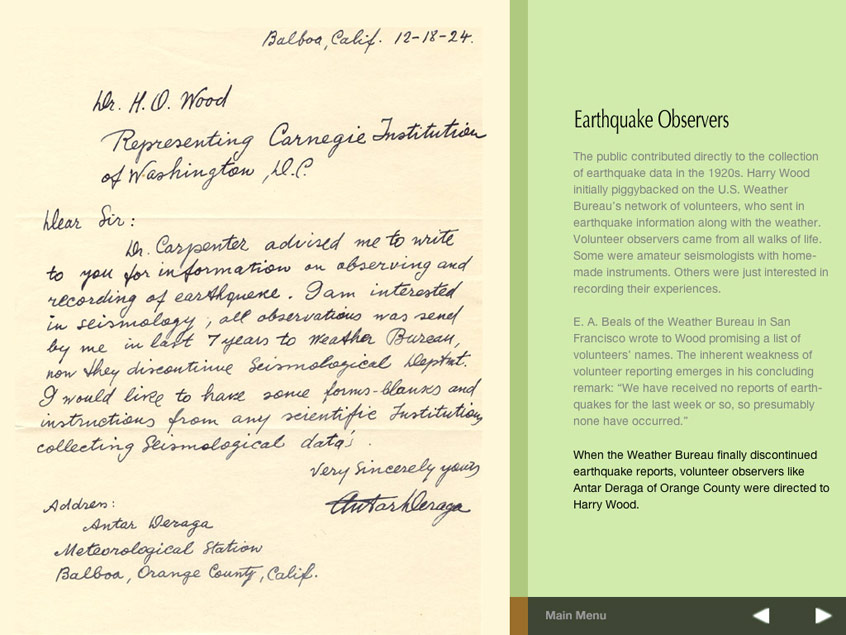 Balboa, Calif. 12-18-24.
Dr. H. O. Wood
Representing Carnegie Institution
of Washington, D.C.
Dear Sir:
Dr. Carpenter advised me to write
to you for information on observing and
recording of earthquene. I am interested
in seismology, all observations was send
by me in last 7 years to Weather Bureau,
now they discontinue Seismological Deptmt.
I would like to have some forms-blanks and
instructions from any scientific Institution,
collecting Seismological data's.
Very Sincerely yours
Antar Deraga
Address:
Antar Deraga
Meteorological Station
Balboa, Orange County, Calif.
Earthquake Observers
The public contributed directly to the collection
of earthquake data in the 1920s. Harry Wood
initially piggybacked on the U.S. Weather
Bureau's network of volunteers, who sent in
earthquake information along with the weather.
Volunteer observers came from all walks of life.
Some were amateur seismologists with home-
made instruments. Others were just interested in
recording their experiences.
E. A. Beals of the Weather Bureau in San
Francisco wrote to Wood promising a list of
volunteers' names. The inherent weakness of
volunteer reporting emerges in his concluding
remark: “We have received no reports of earth-
quakes for the last week or so, so presumably
none have occurred.”
When the Weather Bureau finally discontinued
earthquake reports, volunteer observers like
Antar Deraga of Orange County were directed to
Harry Wood.
Main Menu